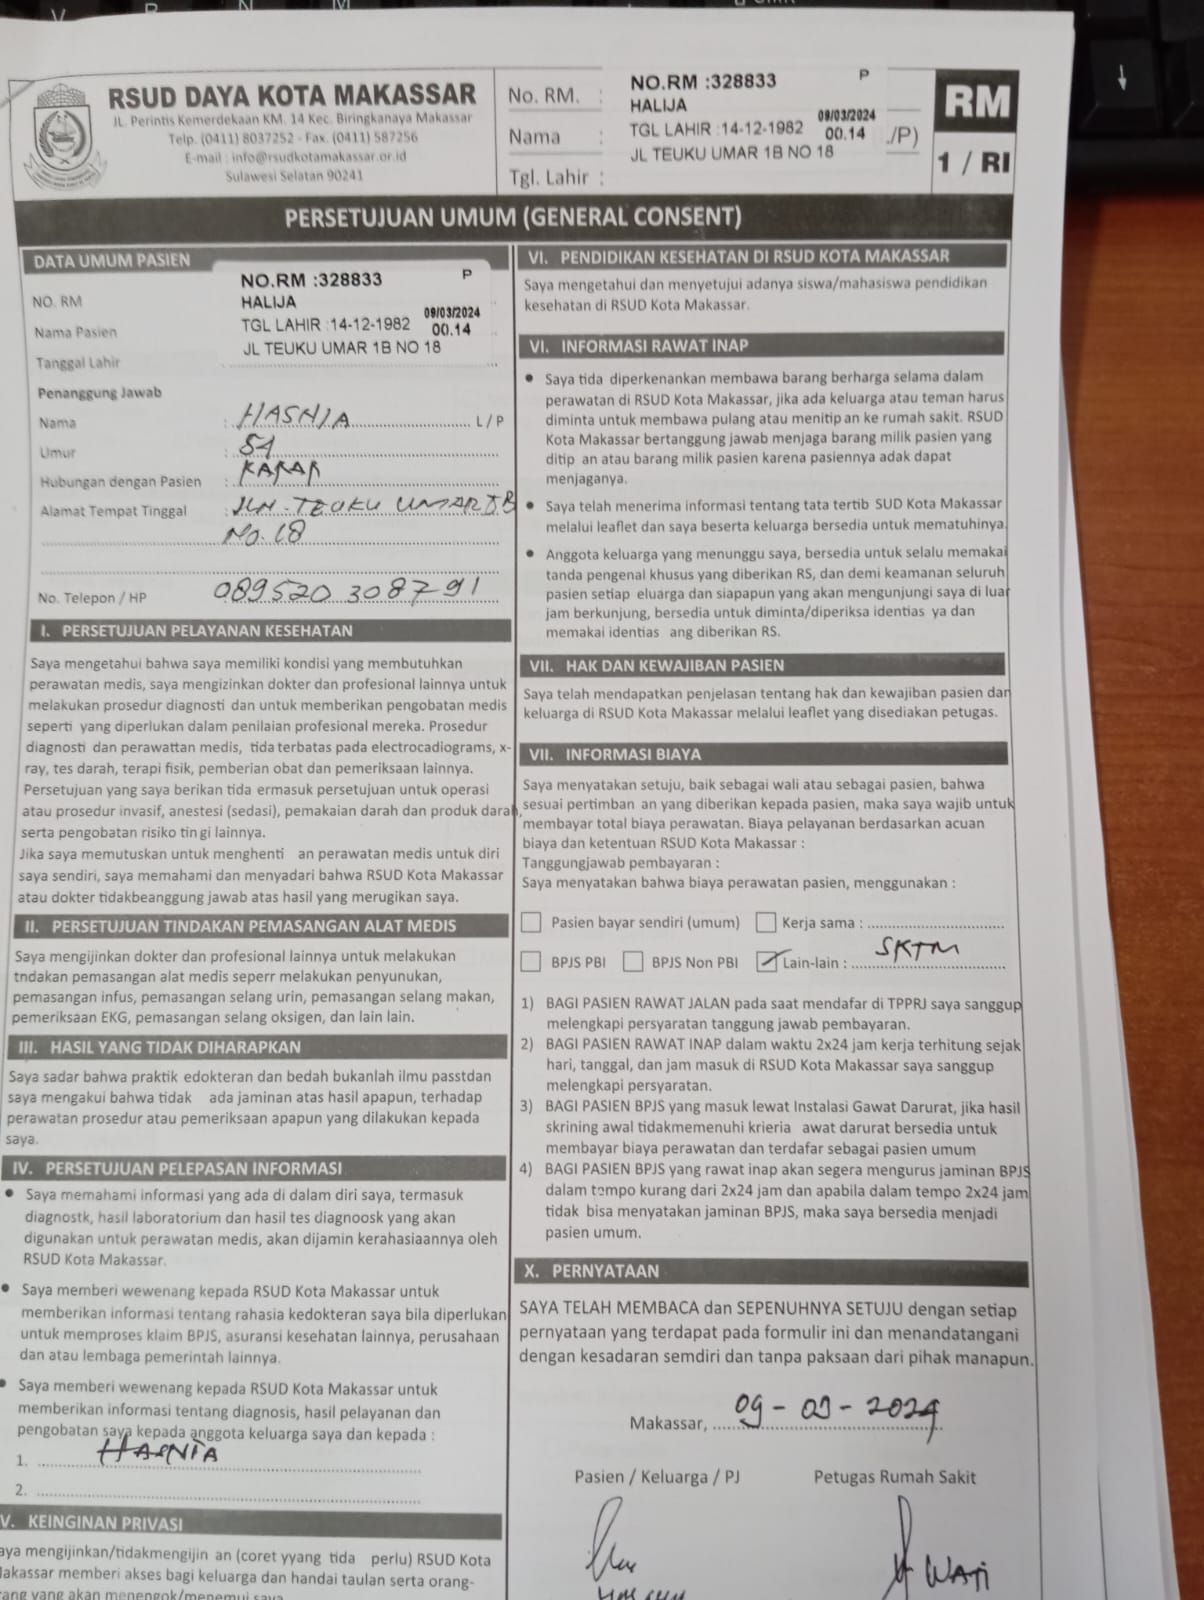 RSUD DAYA KOTA MAKASSAR
JL. Perintis Kemerdekaan KM. 14 Kec. Biringkanaya Makassar
Telp. (0411) 8037252 - Fax. (0411) 587256
E-mail : info@rsudkotamakassar.or.id
Sulawesi Selatan 90241
No. RM. :
Nama :
Tgl. Lahir :
NO.RM :328833 P
HALIJA
TGL LAHIR :14-12-1982 09/03/2024 00.14
JL TEUKU UMAR 1B NO 18
/P)
RM
1 / RI
PERSETUJUAN UMUM (GENERAL CONSENT)
DATA UMUM PASIEN
NO. RM
Nama Pasien
Tanggal Lahir
NO.RM :328833 P
HALIJA
TGL LAHIR :14-12-1982 09/03/2024 00.14
JL TEUKU UMAR 1B NO 18
Penanggung Jawab
Nama : HASNIA L / P
Umur : 51
Hubungan dengan Pasien : KAKAK
Alamat Tempat Tinggal : JLN. TEUKU UMAR
No. 18
No. Telepon / HP 089520308791
I. PERSETUJUAN PELAYANAN KESEHATAN
Saya mengetahui bahwa saya memiliki kondisi yang membutuhkan
perawatan medis, saya mengizinkan dokter dan profesional lainnya untuk
melakukan prosedur diagnosti dan untuk memberikan pengobatan medis
seperti yang diperlukan dalam penilaian profesional mereka. Prosedur
diagnosti dan perawattan medis, tida terbatas pada electrocadiograms, x-
ray, tes darah, terapi fisik, pemberian obat dan pemeriksaan lainnya.
Persetujuan yang saya berikan tida ermasuk persetujuan untuk operasi
atau prosedur invasif, anestesi (sedasi), pemakaian darah dan produk darah,
serta pengobatan risiko tin gi lainnya.
Jika saya memutuskan untuk menghenti an perawatan medis untuk diri
saya sendiri, saya memahami dan menyadari bahwa RSUD Kota Makassar
atau dokter tidakbeanggung jawab atas hasil yang merugikan saya.
II. PERSETUJUAN TINDAKAN PEMASANGAN ALAT MEDIS
Saya mengijinkan dokter dan profesional lainnya untuk melakukan
tndakan pemasangan alat medis seperr melakukan penyunukan,
pemasangan infus, pemasangan selang urin, pemasangan selang makan,
pemeriksaan EKG, pemasangan selang oksigen, dan lain lain.
III. HASIL YANG TIDAK DIHARAPKAN
Saya sadar bahwa praktik edokteran dan bedah bukanlah ilmu passtdan
saya mengakui bahwa tidak ada jaminan atas hasil apapun, terhadap
perawatan prosedur atau pemeriksaan apapun yang dilakukan kepada
saya.
IV. PERSETUJUAN PELEPASAN INFORMASI
• Saya memahami informasi yang ada di dalam diri saya, termasuk
diagnostk, hasil laboratorium dan hasil tes diagnoosk yang akan
digunakan untuk perawatan medis, akan dijamin kerahasiaannya oleh
RSUD Kota Makassar.
• Saya memberi wewenang kepada RSUD Kota Makassar untuk
memberikan informasi tentang rahasia kedokteran saya bila diperlukan
untuk memproses klaim BPJS, asuransi kesehatan lainnya, perusahaan
dan atau lembaga pemerintah lainnya.
• Saya memberi wewenang kepada RSUD Kota Makassar untuk
memberikan informasi tentang diagnosis, hasil pelayanan dan
pengobatan saya kepada anggota keluarga saya dan kepada :
1. HASNIA
2.
V. KEINGINAN PRIVASI
aya mengijinkan/tidakmengijin an (coret yyang tida perlu) RSUD Kota
Makassar memberi akses bagi keluarga dan handai taulan serta orang-
rang yang akan menengok/menemui saya
VI. PENDIDIKAN KESEHATAN DI RSUD KOTA MAKASSAR
Saya mengetahui dan menyetujui adanya siswa/mahasiswa pendidikan
kesehatan di RSUD Kota Makassar.
VI. INFORMASI RAWAT INAP
• Saya tida diperkenankan membawa barang berharga selama dalam
perawatan di RSUD Kota Makassar, jika ada keluarga atau teman harus
diminta untuk membawa pulang atau menitip an ke rumah sakit. RSUD
Kota Makassar bertanggung jawab menjaga barang milik pasien yang
ditip an atau barang milik pasien karena pasiennya adak dapat
menjaganya.
• Saya telah menerima informasi tentang tata tertib SUD Kota Makassar
melalui leaflet dan saya beserta keluarga bersedia untuk mematuhinya.
• Anggota keluarga yang menunggu saya, bersedia untuk selalu memakai
tanda pengenal khusus yang diberikan RS, dan demi keamanan seluruh
pasien setiap eluarga dan siapapun yang akan mengunjungi saya di luar
jam berkunjung, bersedia untuk diminta/diperiksa identias ya dan
memakai identias ang diberikan RS.
VII. HAK DAN KEWAJIBAN PASIEN
Saya telah mendapatkan penjelasan tentang hak dan kewajiban pasien dan
keluarga di RSUD Kota Makassar melalui leaflet yang disediakan petugas.
VII. INFORMASI BIAYA
Saya menyatakan setuju, baik sebagai wali atau sebagai pasien, bahwa
sesuai pertimban an yang diberikan kepada pasien, maka saya wajib untuk
membayar total biaya perawatan. Biaya pelayanan berdasarkan acuan
biaya dan ketentuan RSUD Kota Makassar :
Tanggungjawab pembayaran :
Saya menyatakan bahwa biaya perawatan pasien, menggunakan :
Pasien bayar sendiri (umum) Kerja sama :
BPJS PBI BPJS Non PBI Lain-lain : SKTM
1) BAGI PASIEN RAWAT JALAN pada saat mendafar di TPPRJ saya sanggup
melengkapi persyaratan tanggung jawab pembayaran.
2) BAGI PASIEN RAWAT INAP dalam waktu 2x24 jam kerja terhitung sejak
hari, tanggal, dan jam masuk di RSUD Kota Makassar saya sanggup
melengkapi persyaratan.
3) BAGI PASIEN BPJS yang masuk lewat Instalasi Gawat Darurat, jika hasil
skrining awal tidakmemenuhi krieria awat darurat bersedia untuk
membayar biaya perawatan dan terdafar sebagai pasien umum
4) BAGI PASIEN BPJS yang rawat inap akan segera mengurus jaminan BPJS
dalam tempo kurang dari 2x24 jam dan apabila dalam tempo 2x24 jam
tidak bisa menyatakan jaminan BPJS, maka saya bersedia menjadi
pasien umum.
X. PERNYATAAN
SAYA TELAH MEMBACA dan SEPENUHNYA SETUJU dengan setiap
pernyataan yang terdapat pada formulir ini dan menandatangani
dengan kesadaran semdiri dan tanpa paksaan dari pihak manapun.
Makassar, 09 - 03 - 2024
Pasien / Keluarga / PJ Petugas Rumah Sakit
WATI